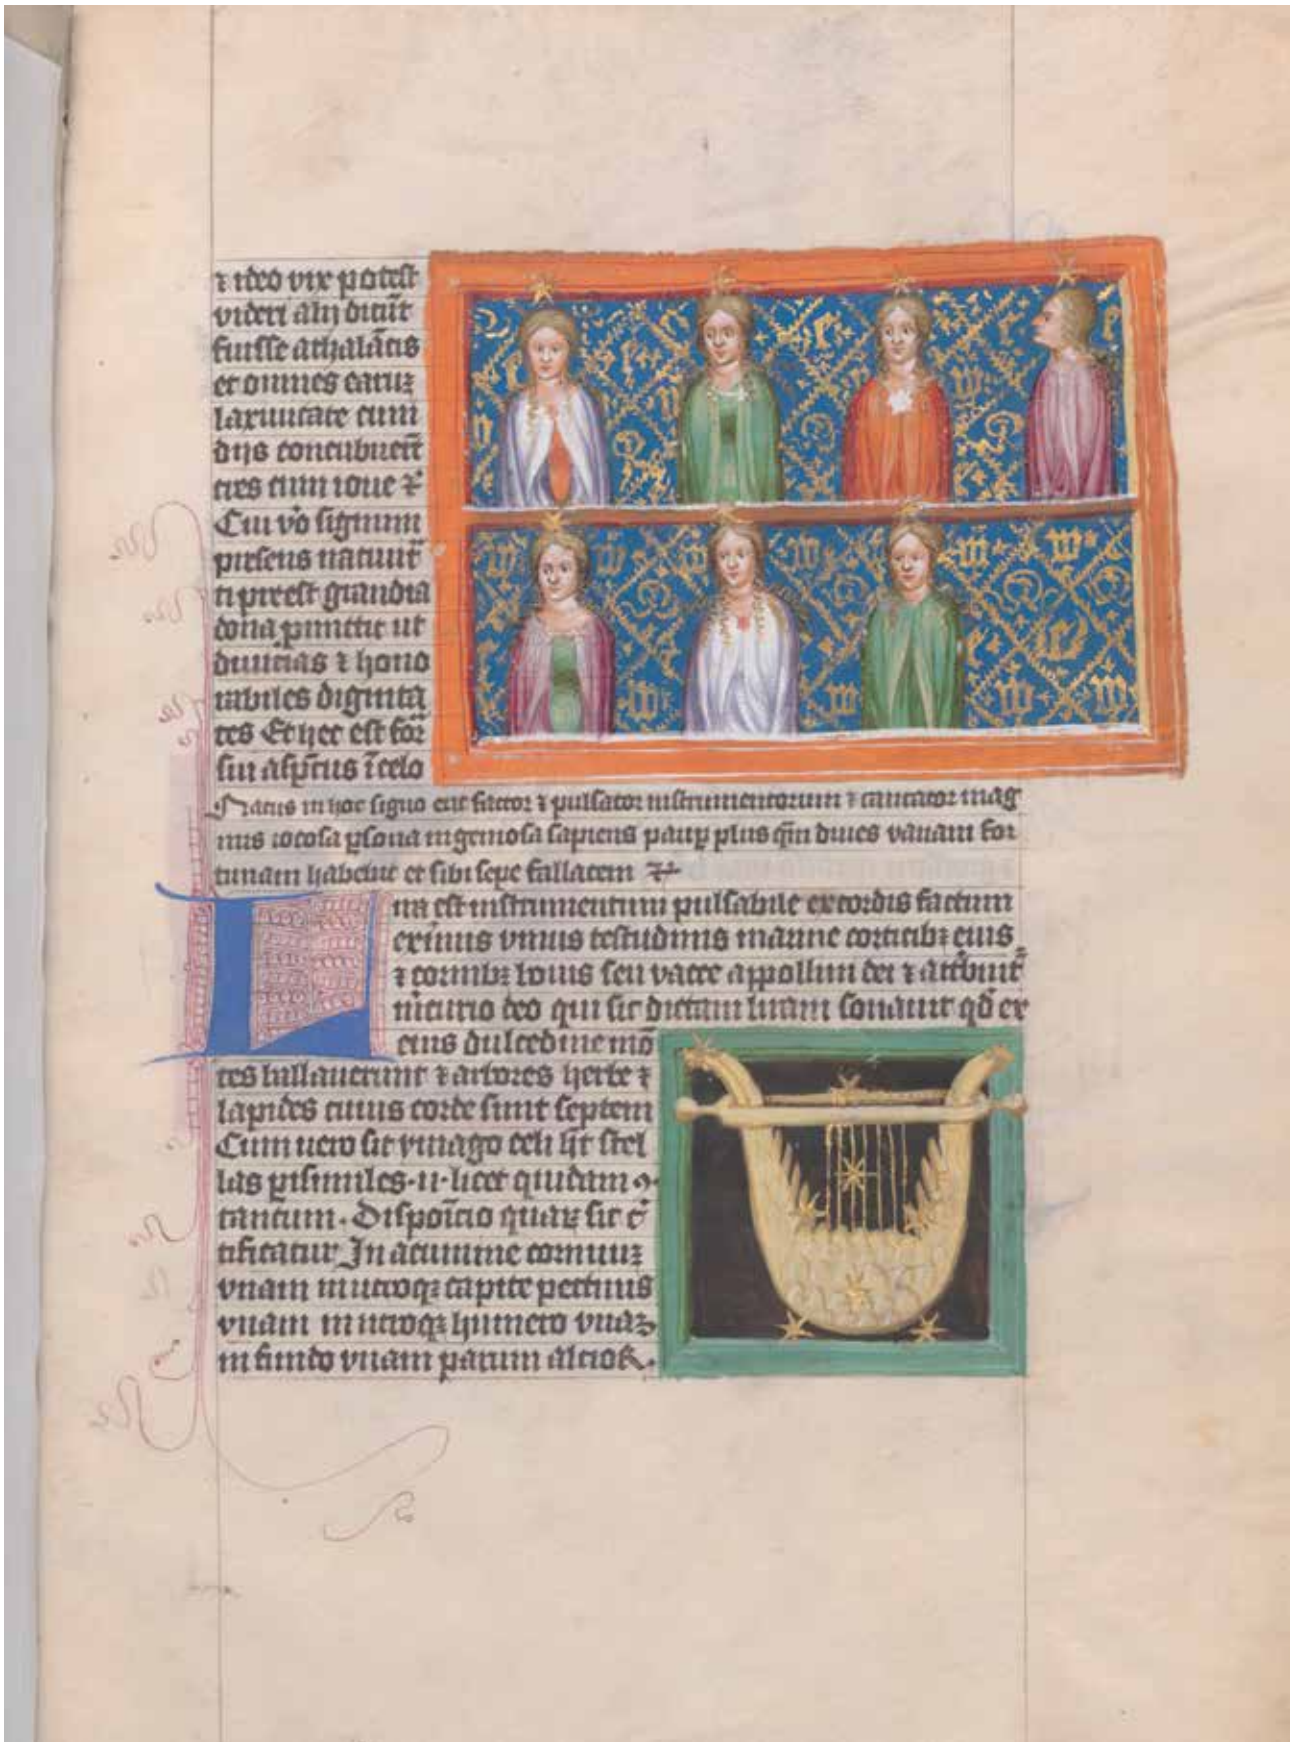 ⁊ ideo vix potest
videri alij dicūt
fuisse athalātis
et omnes earuꝫ
laxiuitate cum
dijs concubuerūt
tres cum ioue ⁊c̄
Cui v̊o signum
presens natiuit̄
ti preest grandia
dona ꝑmittit ut
diuicias ⁊ hono
rabiles dignita
tes Et hec est for̄
sui asp̄ctus ī celo
Natus in hoc signo erit factor ⁊ pulsator instrumentorum ⁊ cantator mag
nus iocosa ꝑsona ingeniosa sapiens pauꝑ plus qm̄ diues vanam for
tunam habebit et sibi sepe fallacem ⁊c̄
Lira est instrumentum pulsabile ex cordis factum
unius testudinis marine corticibꝫ eius
⁊ cornibꝫ bouis seu vacce appollini dei ⁊ attribuit̄
m̄curio deo qui sic dictam liram sonauit qd̄ ex
eius dulcedine mō
tes ballauerunt ⁊ arbores herbe ⁊
lapides cuius corde sunt septem
Cum uero sit ymago celi hꝫ stel
las ꝑsimiles·11·licet quidam 9·
tantum· Disposicio quaꝝ sic c̄
tificatur In acumine cornuuꝫ
vnam in utroqꝫ capite pectinis
vnam in utroqꝫ humero vnaꝫ
in fundo vnam parum alcioꝝ·